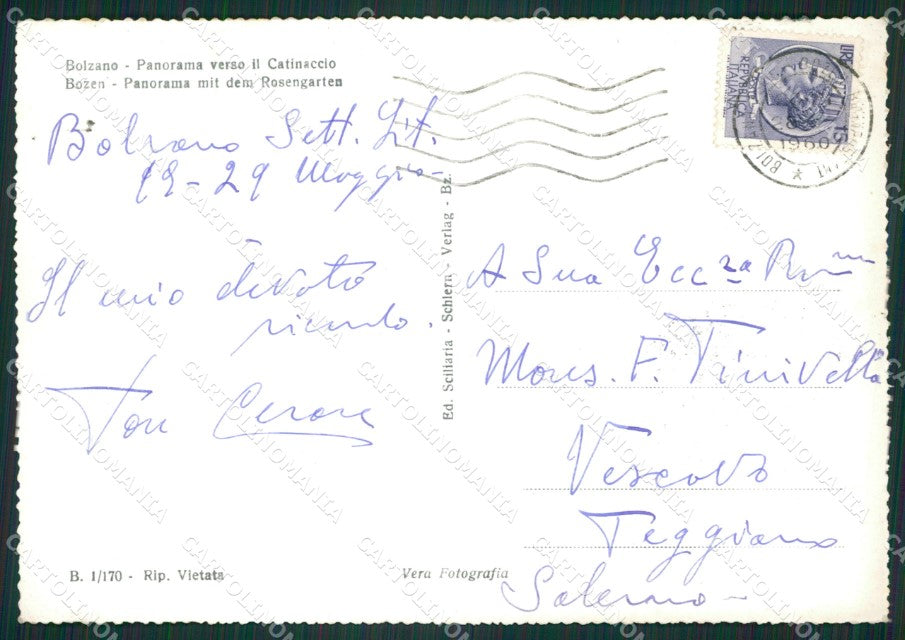 Bolzano - Panorama verso il Catinaccio
Bozen - Panorama mit dem Rosengarten
Bolzano Sett. Lit.
19-29 Maggio-
Il mio devoto
ricordo.
Don Cesare
Ed. Sciliaria - Schlern - Verlag - Bz.
REPUBBLICA
ITALIANA
LIRE 15
1960
BOLZ
A Sua Ecc.za Rev.ma
Mons. F. Tinivella
Vescovo
Teggiano
Salerno -
B. 1/170 - Rip. Vietata
Vera Fotografia
CARTOLINOMANIA